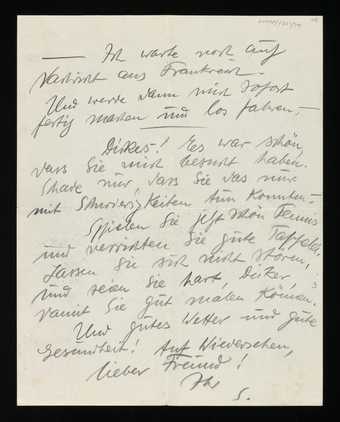 — Ich warte noch auf
Nachricht aus Frankreich.
Und werde dann mich sofort
fertig machen und los fahren. —
Dickes! Es war schön,
dass Sie mich besucht haben.
Schade nur, dass Sie das nur
mit Schwierigkeiten tun konnten. —
Spielen Sie jetzt schön Tennis
und verrichten Sie gute
Lassen Sie sich nicht stören,
und seien Sie hart, Dicker,
damit Sie gut malen können.
Und gutes Wetter und gute
Gesundheit! Auf Wiedersehen,
lieber Freund!
Ihr
S.